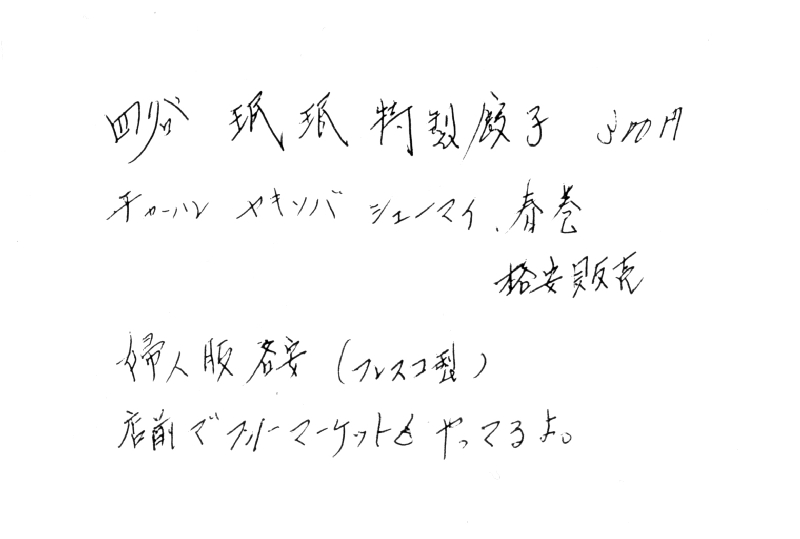 四谷 珉珉 特製餃子 500円
チャーハン ヤキソバ シューマイ、春巻
格安販売
婦人服 格安 (フレスコ型)
店前でフリーマーケットも やってるよ。